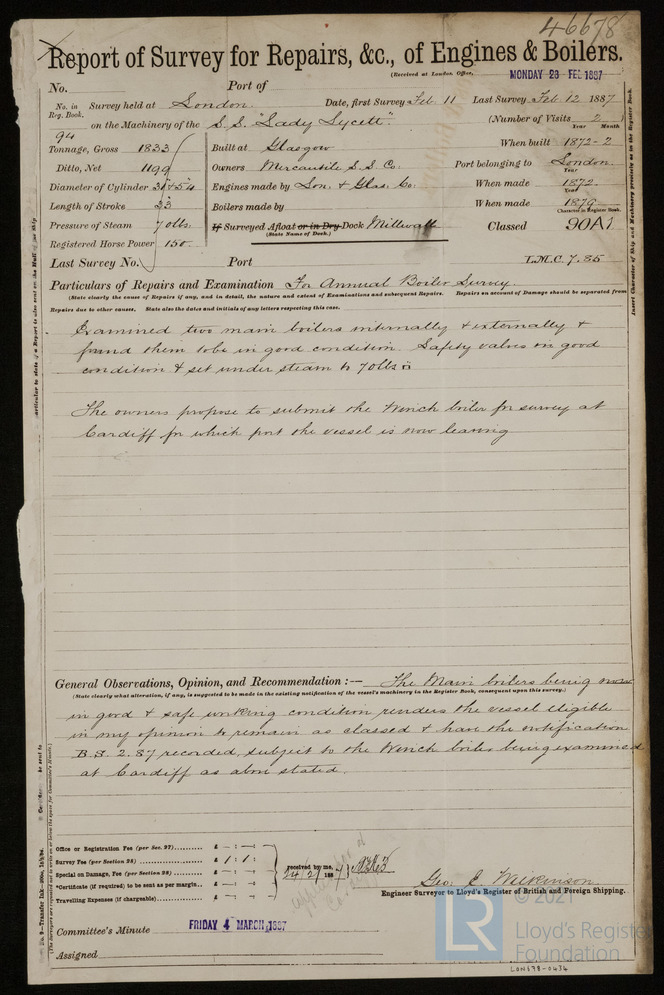 46678
Report of Survey for Repairs, &c., of Engines & Boilers.
(Received at London Office, MONDAY 28 FEB 1887
No. Port of
No. in Reg. Book. Survey held at London. Date, first Survey Feb. 11 Last Survey Feb. 12 1887
94 on the Machinery of the S.S. "Lady Lycett". (Number of Visits 2)
Year Month
Tonnage, Gross 1833 Built at Glasgow When built 1872-2
Ditto, Net 1199 Owners Mercantile S.S. Co. Port belonging to London
Diameter of Cylinder 31" & 54" Engines made by Lon. & Glas. Co. When made 1872
Year
Length of Stroke 33" Boilers made by When made 1879
Year
Character in Register Book.
Pressure of Steam 70 lbs. If Surveyed Afloat or in Dry Dock Millwall Classed 90A1
(State Name of Dock.)
Registered Horse Power 150.
Last Survey No. Port L.M.C. 7.85
Particulars of Repairs and Examination For Annual Boiler Survey.
(State clearly the cause of Repairs if any, and in detail, the nature and extent of Examinations and subsequent Repairs. Repairs on account of Damage should be separated from
Repairs due to other causes. State also the dates and initials of any letters respecting this case.
Examined two main boilers internally & externally &
found them to be in good condition. Safety valves in good
condition & set under steam to 70 lbs □
The owners propose to submit the Winch boiler for survey at
Cardiff for which port the vessel is now leaving
General Observations, Opinion, and Recommendation :— The Main boilers being now
(State clearly what alteration, if any, is suggested to be made in the existing notification of the vessel's machinery in the Register Book, consequent upon this survey.)
in good & safe working condition renders the vessel eligible
in my opinion to remain as classed & have the notification
B.S. 2.87 recorded, subject to the Winch boiler being examined
at Cardiff as above stated.
Office or Registration Fee (per Sec. 27) £ — : — :
Survey Fee (per Section 28) £ 1 : 1 :
Special on Damage, Fee (per Section 28) £ — : — :
*Certificate (if required) to be sent as per margin.. £ — : — :
Travelling Expenses (if chargeable) £ — : — :
received by me,
24/2/1887
Geo. E. Wilkinson
Engineer Surveyor to Lloyd's Register of British and Foreign Shipping.
Committee's Minute FRIDAY 4 MARCH 1887
Assigned
Insert Character of Ship and Machinery precisely as in the Register Book.
© 2021
LR Lloyd's Register
Foundation
LON678-0434